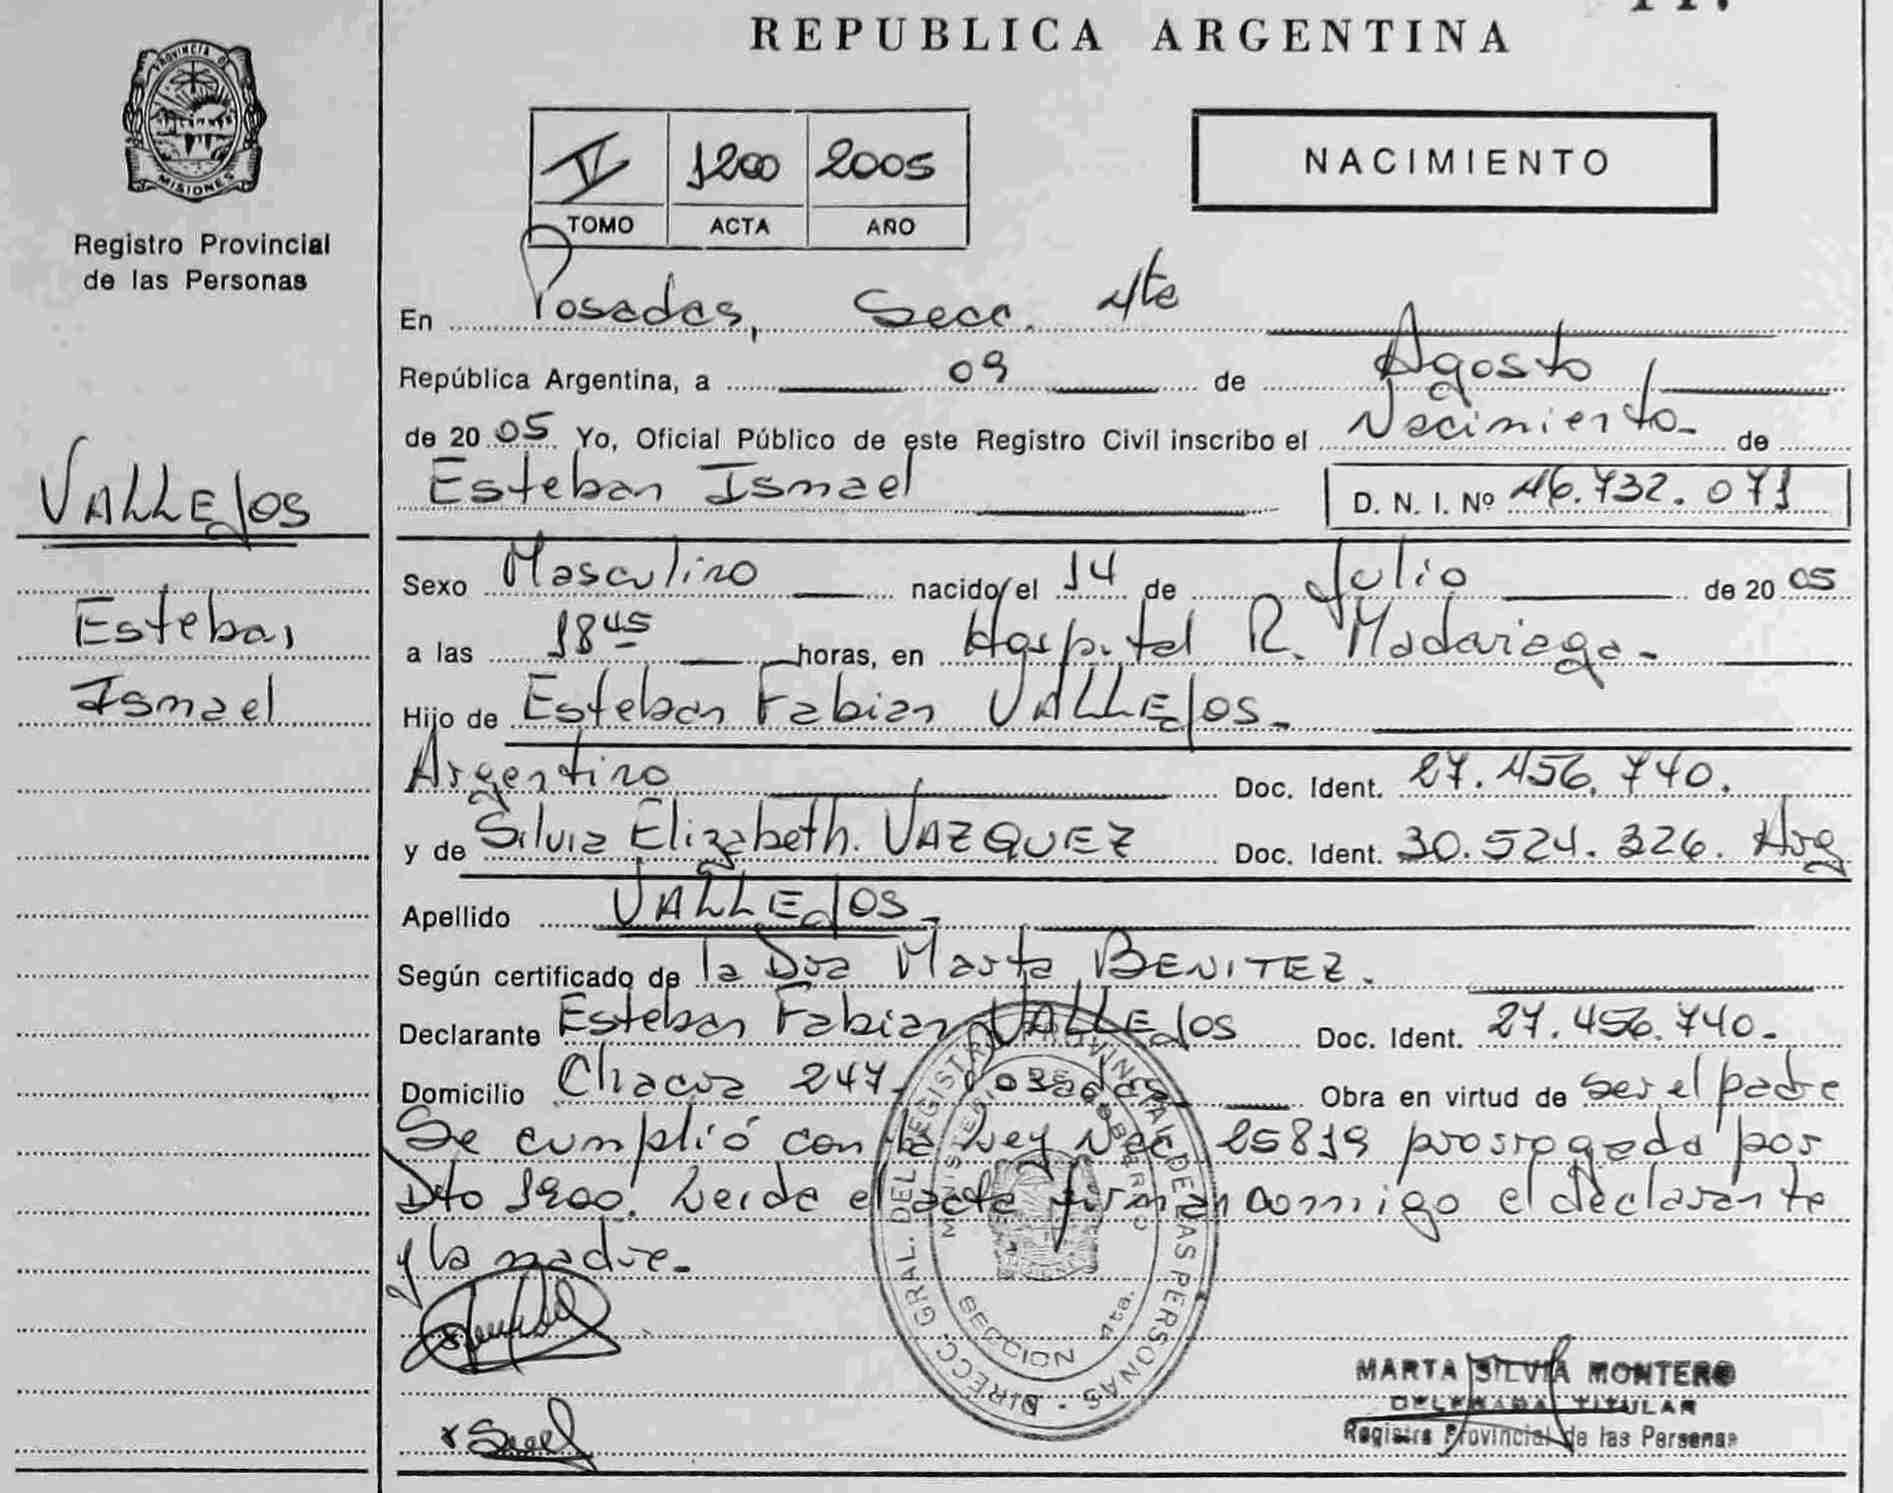 REPUBLICA ARGENTINA
PROVINCIA DE
MISIONES
Registro Provincial
de las Personas
IV 1200 2005
TOMO ACTA AÑO
NACIMIENTO
En Posadas, Secc. 4ta
República Argentina, a 09 de Agosto
de 2005 Yo, Oficial Público de este Registro Civil inscribo el Nacimiento- de
Esteban Ismael D. N. I. Nº 46.732.071
VALLEJOS
Esteban
Ismael
Sexo Masculino nacido/el 14 de Julio de 2005
a las 18 45 horas, en Hospital R. Madariaga-
Hijo de Esteban Fabian VALLEJOS-
Argentino Doc. Ident. 27.456.740.
y de Silvia Elizabeth. VAZQUEZ Doc. Ident. 30.524.326. Arg
Apellido VALLEJOS-
Según certificado de la Dra Marta BENITEZ.
Declarante Esteban Fabian VALLEJOS Doc. Ident. 27.456.740-
Domicilio Chacra 247- Posadas Obra en virtud de ser el padre
Se cumplió con la Ley Nac 25819 prorrogada por
Dto 1200. Leida el acta firman conmigo el declarante
y la madre-
DIRECC. GRAL. DEL REGISTRO PROVINCIAL DE LAS PERSONAS
MINISTERIO DE GOBIERNO
SECCION 4ta.
MARTA SILVIA MONTERO
DELEGADA TITULAR
Registro Provincial de las Personas